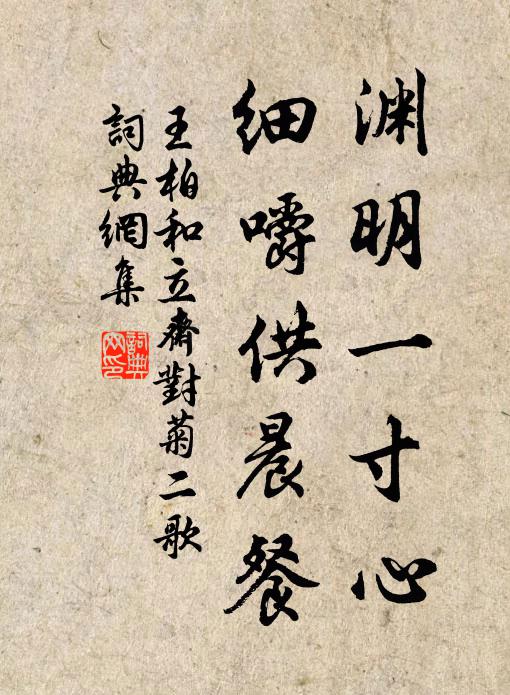 渊明一寸心
细嚼供晨餐
王柏和立齋對菊二歌
詞典網集
詞典網印